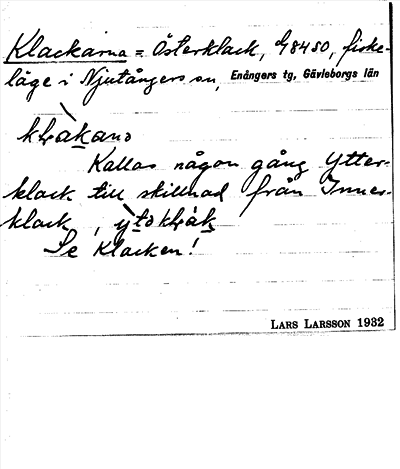 Klackarna = Österklack, G8450, fiske-
läge i Njutångers sn, Enångers tg, Gävleborgs län
Kallas någon gång Ytter-
klack till skillnad från Inner-
klack,
Se Klacken!
LARS LARSSON 1932